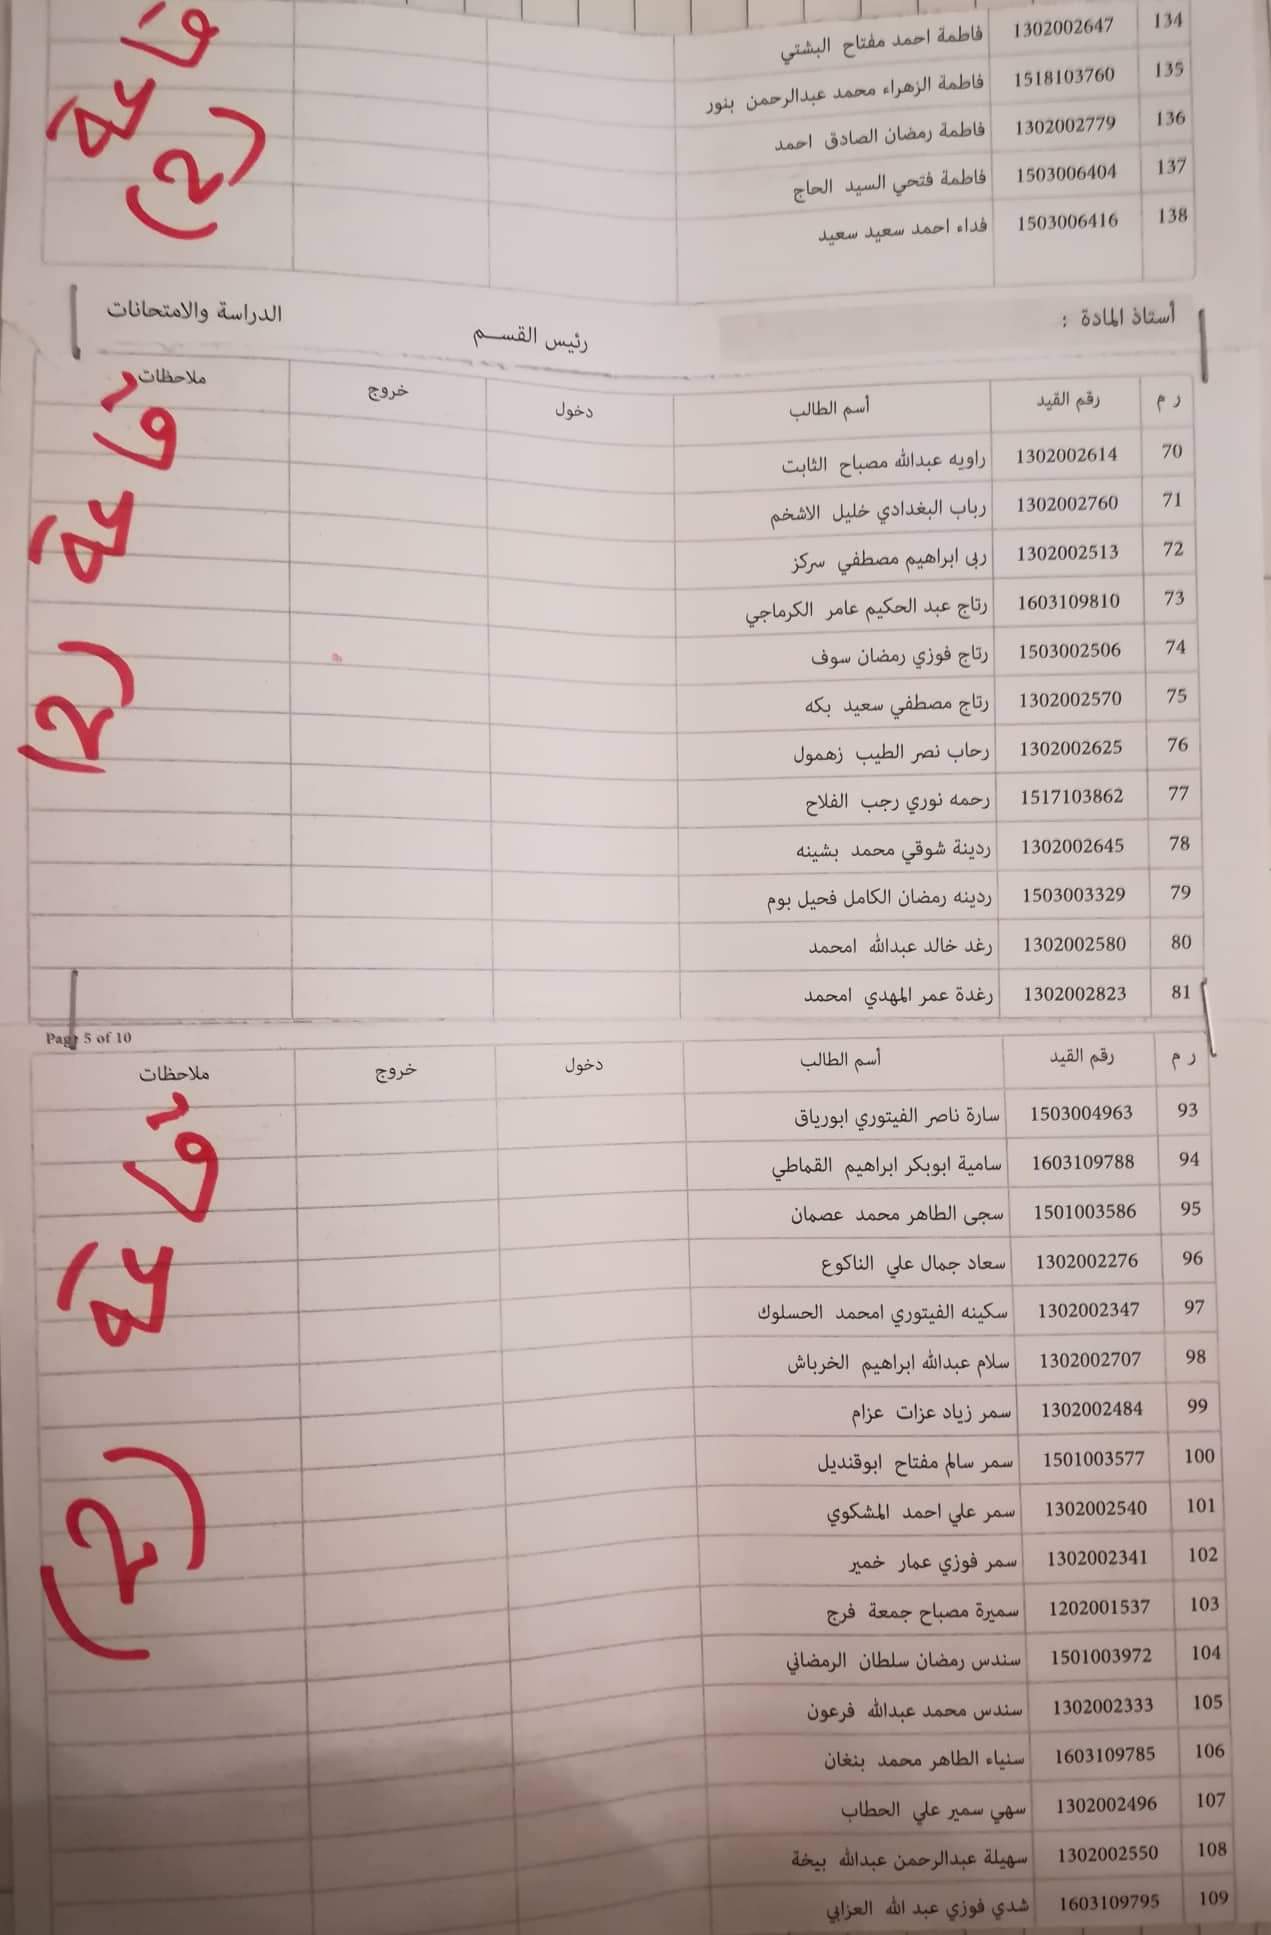 134 1302002647 فاطمة احمد مفتاح البشتي
135 1518103760 فاطمة الزهراء محمد عبدالرحمن بنور
136 1302002779 فاطمة رمضان الصادق احمد
137 1503006404 فاطمة فتحي السيد الحاج
138 1503006416 فداء احمد سعيد سعيد
قاعة (2)
أستاذ المادة : رئيس القسم الدراسة والامتحانات
ر م رقم القيد أسم الطالب دخول خروج ملاحظات
70 1302002614 راويه عبدالله مصباح الثابت
71 1302002760 رباب البغدادي خليل الاشخم
72 1302002513 ربى ابراهيم مصطفي سركز
73 1603109810 رتاج عبد الحكيم عامر الكرماجي
74 1503002506 رتاج فوزي رمضان سوف
75 1302002570 رتاج مصطفي سعيد بكه
76 1302002625 رحاب نصر الطيب زهمول
77 1517103862 رحمه نوري رجب الفلاح
78 1302002645 ردينة شوقي محمد بشينه
79 1503003329 ردينه رمضان الكامل فحيل بوم
80 1302002580 رغد خالد عبدالله امحمد
81 1302002823 رغدة عمر المهدي امحمد
قاعة (2)
Page 5 of 10
ر م رقم القيد أسم الطالب دخول خروج ملاحظات
93 1503004963 سارة ناصر الفيتوري ابورياق
94 1603109788 سامية ابوبكر ابراهيم القماطي
95 1501003586 سجى الطاهر محمد عصمان
96 1302002276 سعاد جمال علي الناكوع
97 1302002347 سكينه الفيتوري امحمد الحسلوك
98 1302002707 سلام عبدالله ابراهيم الخرباش
99 1302002484 سمر زياد عزات عزام
100 1501003577 سمر سالم مفتاح ابوقنديل
101 1302002540 سمر علي احمد المشكوي
102 1302002341 سمر فوزي عمار خمير
103 1202001537 سميرة مصباح جمعة فرج
104 1501003972 سندس رمضان سلطان الرمضاني
105 1302002333 سندس محمد عبدالله فرعون
106 1603109785 سنياء الطاهر محمد بنغان
107 1302002496 سهي سمير علي الحطاب
108 1302002550 سهيلة عبدالرحمن عبدالله بيخة
109 1603109795 شدي فوزي عبد الله العزابي
قاعة (2)